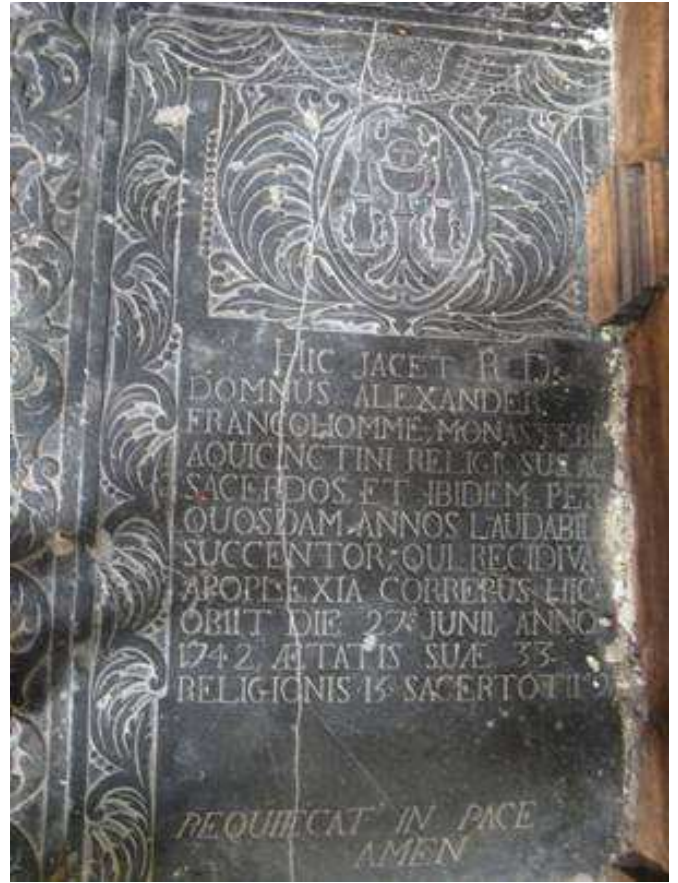 HIC JACET R. D.
DOMNUS ALEXANDER
FRANCOHOMME, MONASTERII
AQUICINCTINI RELIGIOSUS AC
SACERDOS, ET IBIDEM PER
QUOSDAM ANNOS LAUDABI
SUCCENTOR; QUI RECIDIVA
APOPLEXIA CORREPUS HIC
OBIIT DIE 27ª JUNII, ANNO
1742, ÆTATIS SUÆ 33
RELIGIONIS 15 SACERTOTII 9
REQUIECAT IN PACE
AMEN